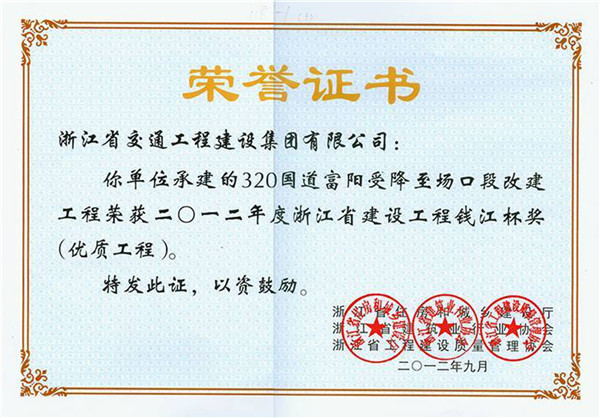 荣誉证书
浙江省交通工程建设集团有限公司：
你单位承建的320国道富阳受降至场口段改建
工程荣获二〇一二年度浙江省建设工程钱江杯奖
(优质工程)。
特发此证，以资鼓励。
浙江省住房和城乡建设厅
浙江省建筑业行业协会
浙江省工程建设质量管理协会
二〇一二年九月